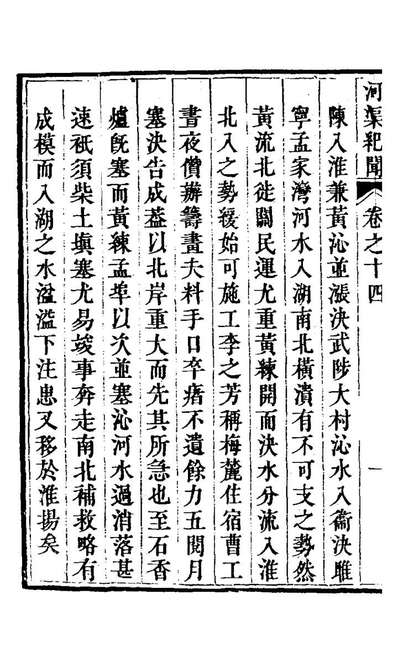 河渠紀聞
卷之十四
一
陳入淮兼黃沁並漲決武陟大村沁水入衞決睢
寧孟家灣河水入湖南北橫潰有不可支之勢然
黃流北徙關民運尤重黃練開而決水分流入淮
北入之勢緩始可施工李之芳稱梅麓住宿曹工
晝夜儹辦籌畫夫料手口卒瘏不遺餘力五閱月
塞決告成葢以北岸重大而先其所急也至石香
爐旣塞而黃練孟埠以次並塞沁河水過消落甚
速祇須柴土塡塞尤易竣事奔走南北補救略有
成模而入湖之水湓溢下注患又移於淮揚矣